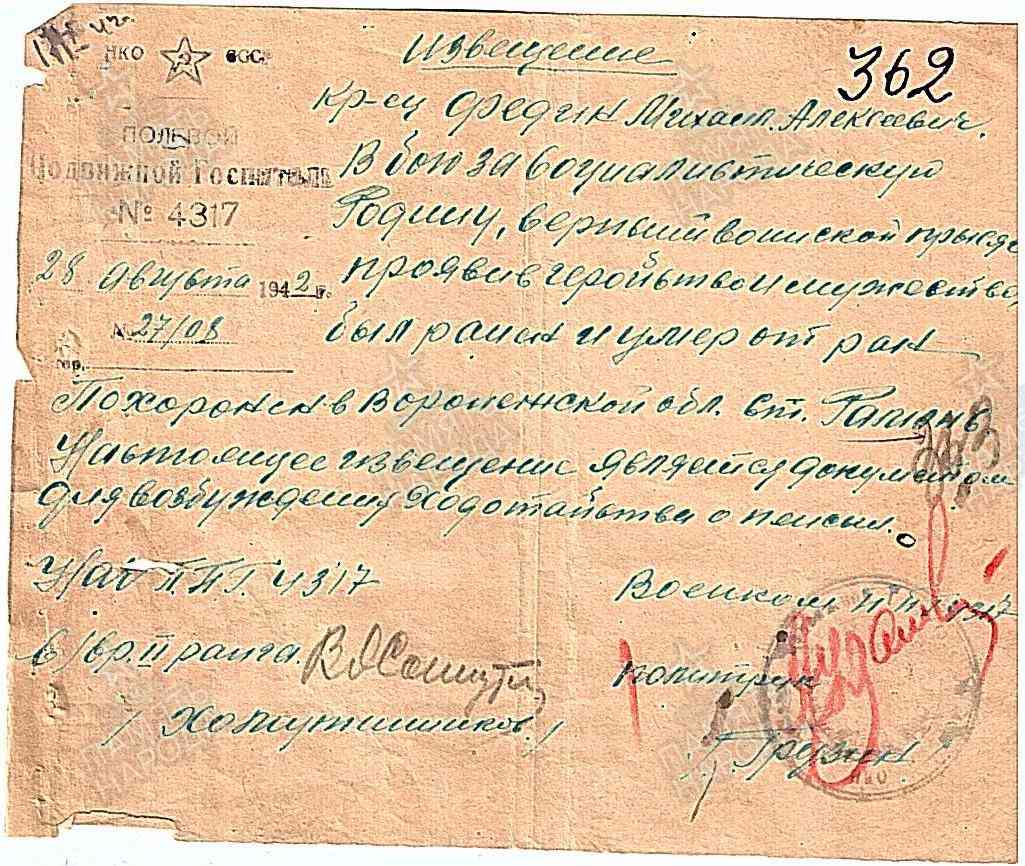 НКО СССР
ПОЛЕВОЙ
Подвижной Госпиталь
№ 4317
28 августа 1942 г.
№ 27/08
гор.
Извещение
362
Кр-ец Федин Михаил Алексеевич.
В бою за социалистическую
Родину, верный воинской присяге
проявив геройство и мужество
был ранен и умер от ран
Похоронен в Воронежской обл. ст. Рамонь
Настоящее извещение является документом
для возбуждения ходотайства о пенсии.
Нач П.П.Г. 4317
Военком
в/вр. II ранга.
политрук
/ /
/ Грузин